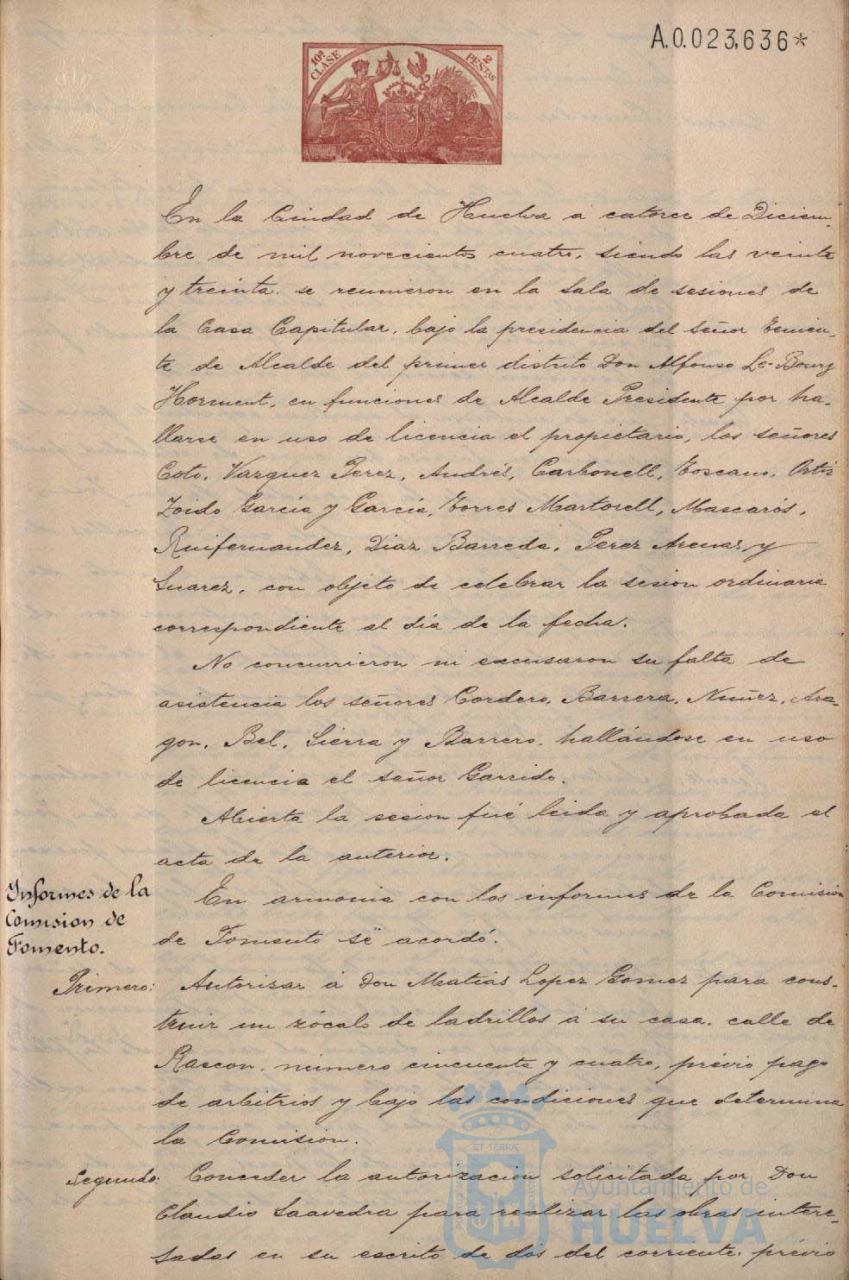 A.0.023,636*
10ª CLASE
2 PESTAS
En la Ciudad de Huelva a catorce de Diciem-
bre de mil novecientos cuatro, siendo las veinte
y treinta. se reunieron en la sala de sesiones de
la Casa Capitular, bajo la presidencia del señor Tenien-
te de Alcalde del primer distrito Don Alfonso Le-Bourg
Horment, en funciones de Alcalde Presidente por ha-
llarse en uso de licencia el propietario, los señores
Coto, Vazquez Perez, Andrés, Carbonell, Toscano, Ortiz
Zoido Garcia y García, Torres Martorell, Mascarós,
Ruifernandez, Diaz Barreda, Perez Arenas, y
Suarez, con objeto de celebrar la sesion ordinaria
correspondiente al día de la fecha.
No concurrieron ni excusaron su falta de
asistencia los señores Cordero, Barrera, Nuñez, Ara-
gon, Bel, Sierra y Barrero, hallándose en uso
de licencia el señor Garrido.
Abierta la sesion fué leida y aprobada el
acta de la anterior.
Informes de la
Comision de
Fomento.
En armonia con los informes de la Comision
de Fomento se acordó.
Primero: Autorizar á Don Matias Lopez Gomez para cons-
truir un zócalo de ladrillos á su casa, calle de
Rascon, número cincuenta y cuatro, prévio pago
de arbitrios y bajo las condiciones que determina
la Comisión.
Segundo: Conceder la autorización solicitada por Don
Claudio Saavedra para realizar las obras intere-
sadas en su escrito de dos del corriente, prévio
Ayuntamiento de
HUELVA